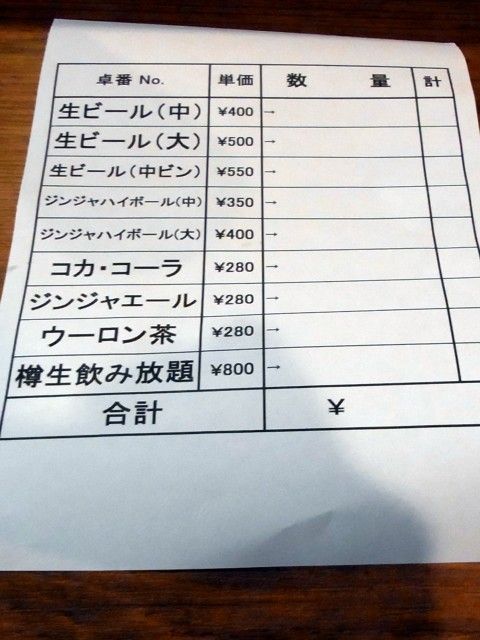 卓番 No. 単価 数 量 計
生ビール(中) ¥400 →
生ビール(大) ¥500 →
生ビール(中ビン) ¥550 →
ジンジャハイボール(中) ¥350 →
ジンジャハイボール(大) ¥400 →
コカ・コーラ ¥280 →
ジンジャエール ¥280 →
ウーロン茶 ¥280 →
樽生飲み放題 ¥800 →
合計 ¥